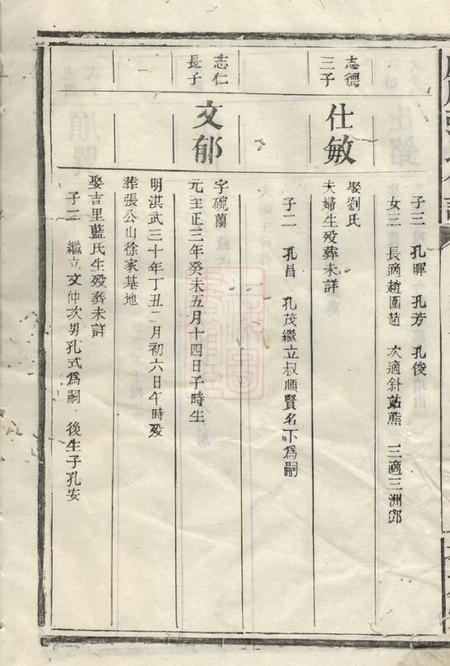 子三 孔暉 孔芳 孔俊
女三 長適趙團趙 次適斜站熊 三適三洲鄧
志德
三子
仕敏
娶劉氏
夫婦生歿葬未詳
子二 孔昌 孔茂繼立叔順賢名下爲嗣
志仁
長子
文郁
字碗蘭
元主正三年癸未五月十四日子時生
明淇武三十年丁丑二月初六日午時歿
葬張公山徐家墓地
娶吉里藍氏生歿葬未詳
子二 繼立文仲次男孔式爲嗣 後生子孔安